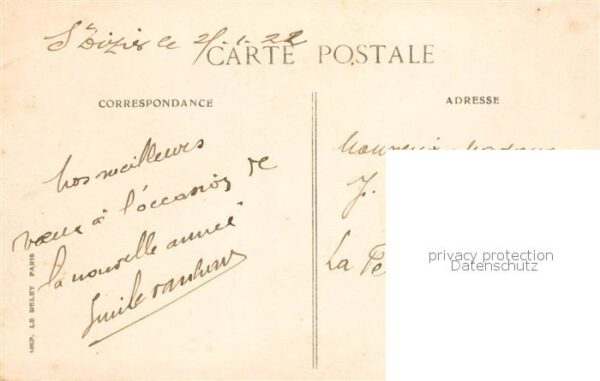 St Dizier le 2/1.22
CARTE POSTALE
CORRESPONDANCE
ADRESSE
Nos meilleurs
vœux à l'occasion de
la nouvelle année
Emile
Monsieur Madame
J.
La Fe
privacy protection
Datenschutz
IMP. LE DELEY PARIS